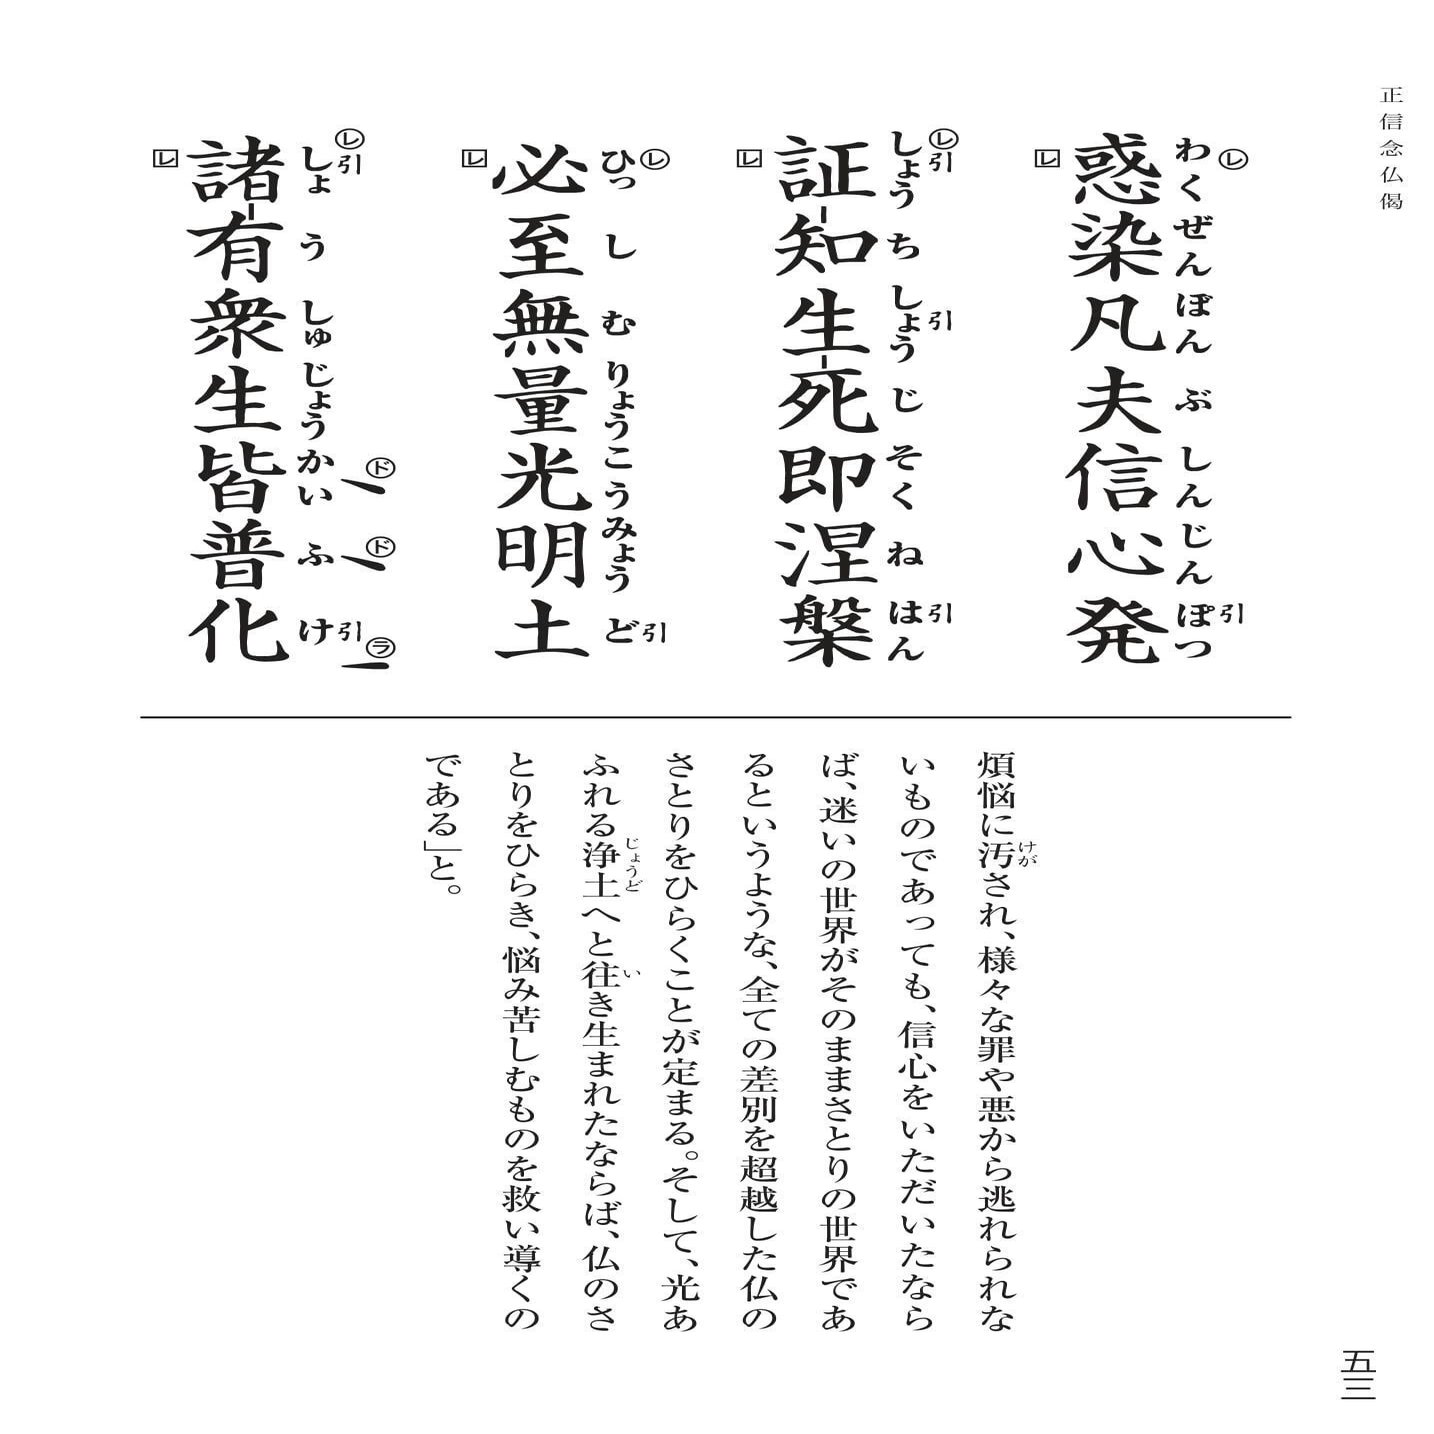 正信念仏偈
惑染凡夫信心発
わくぜんぼんぶしんじんぽつ
レ 引
レ
証知生死即涅槃
しょうちしょうじそくねはん
レ 引 引 引
レ
必至無量光明土
ひっしむりょうこうみょうど
レ 引
レ
諸有衆生皆普化
しょうしゅじょうかいふけ
レ 引 ド ド 引 ラ
レ
煩悩に汚され、様々な罪や悪から逃れられな
けが
いものであっても、信心をいただいたなら
ば、迷いの世界がそのままさとりの世界であ
るというような、全ての差別を超越した仏の
さとりをひらくことが定まる。そして、光あ
ふれる浄土へと往き生まれたならば、仏のさ
じょうど い
とりをひらき、悩み苦しむものを救い導くの
である」と。
五三